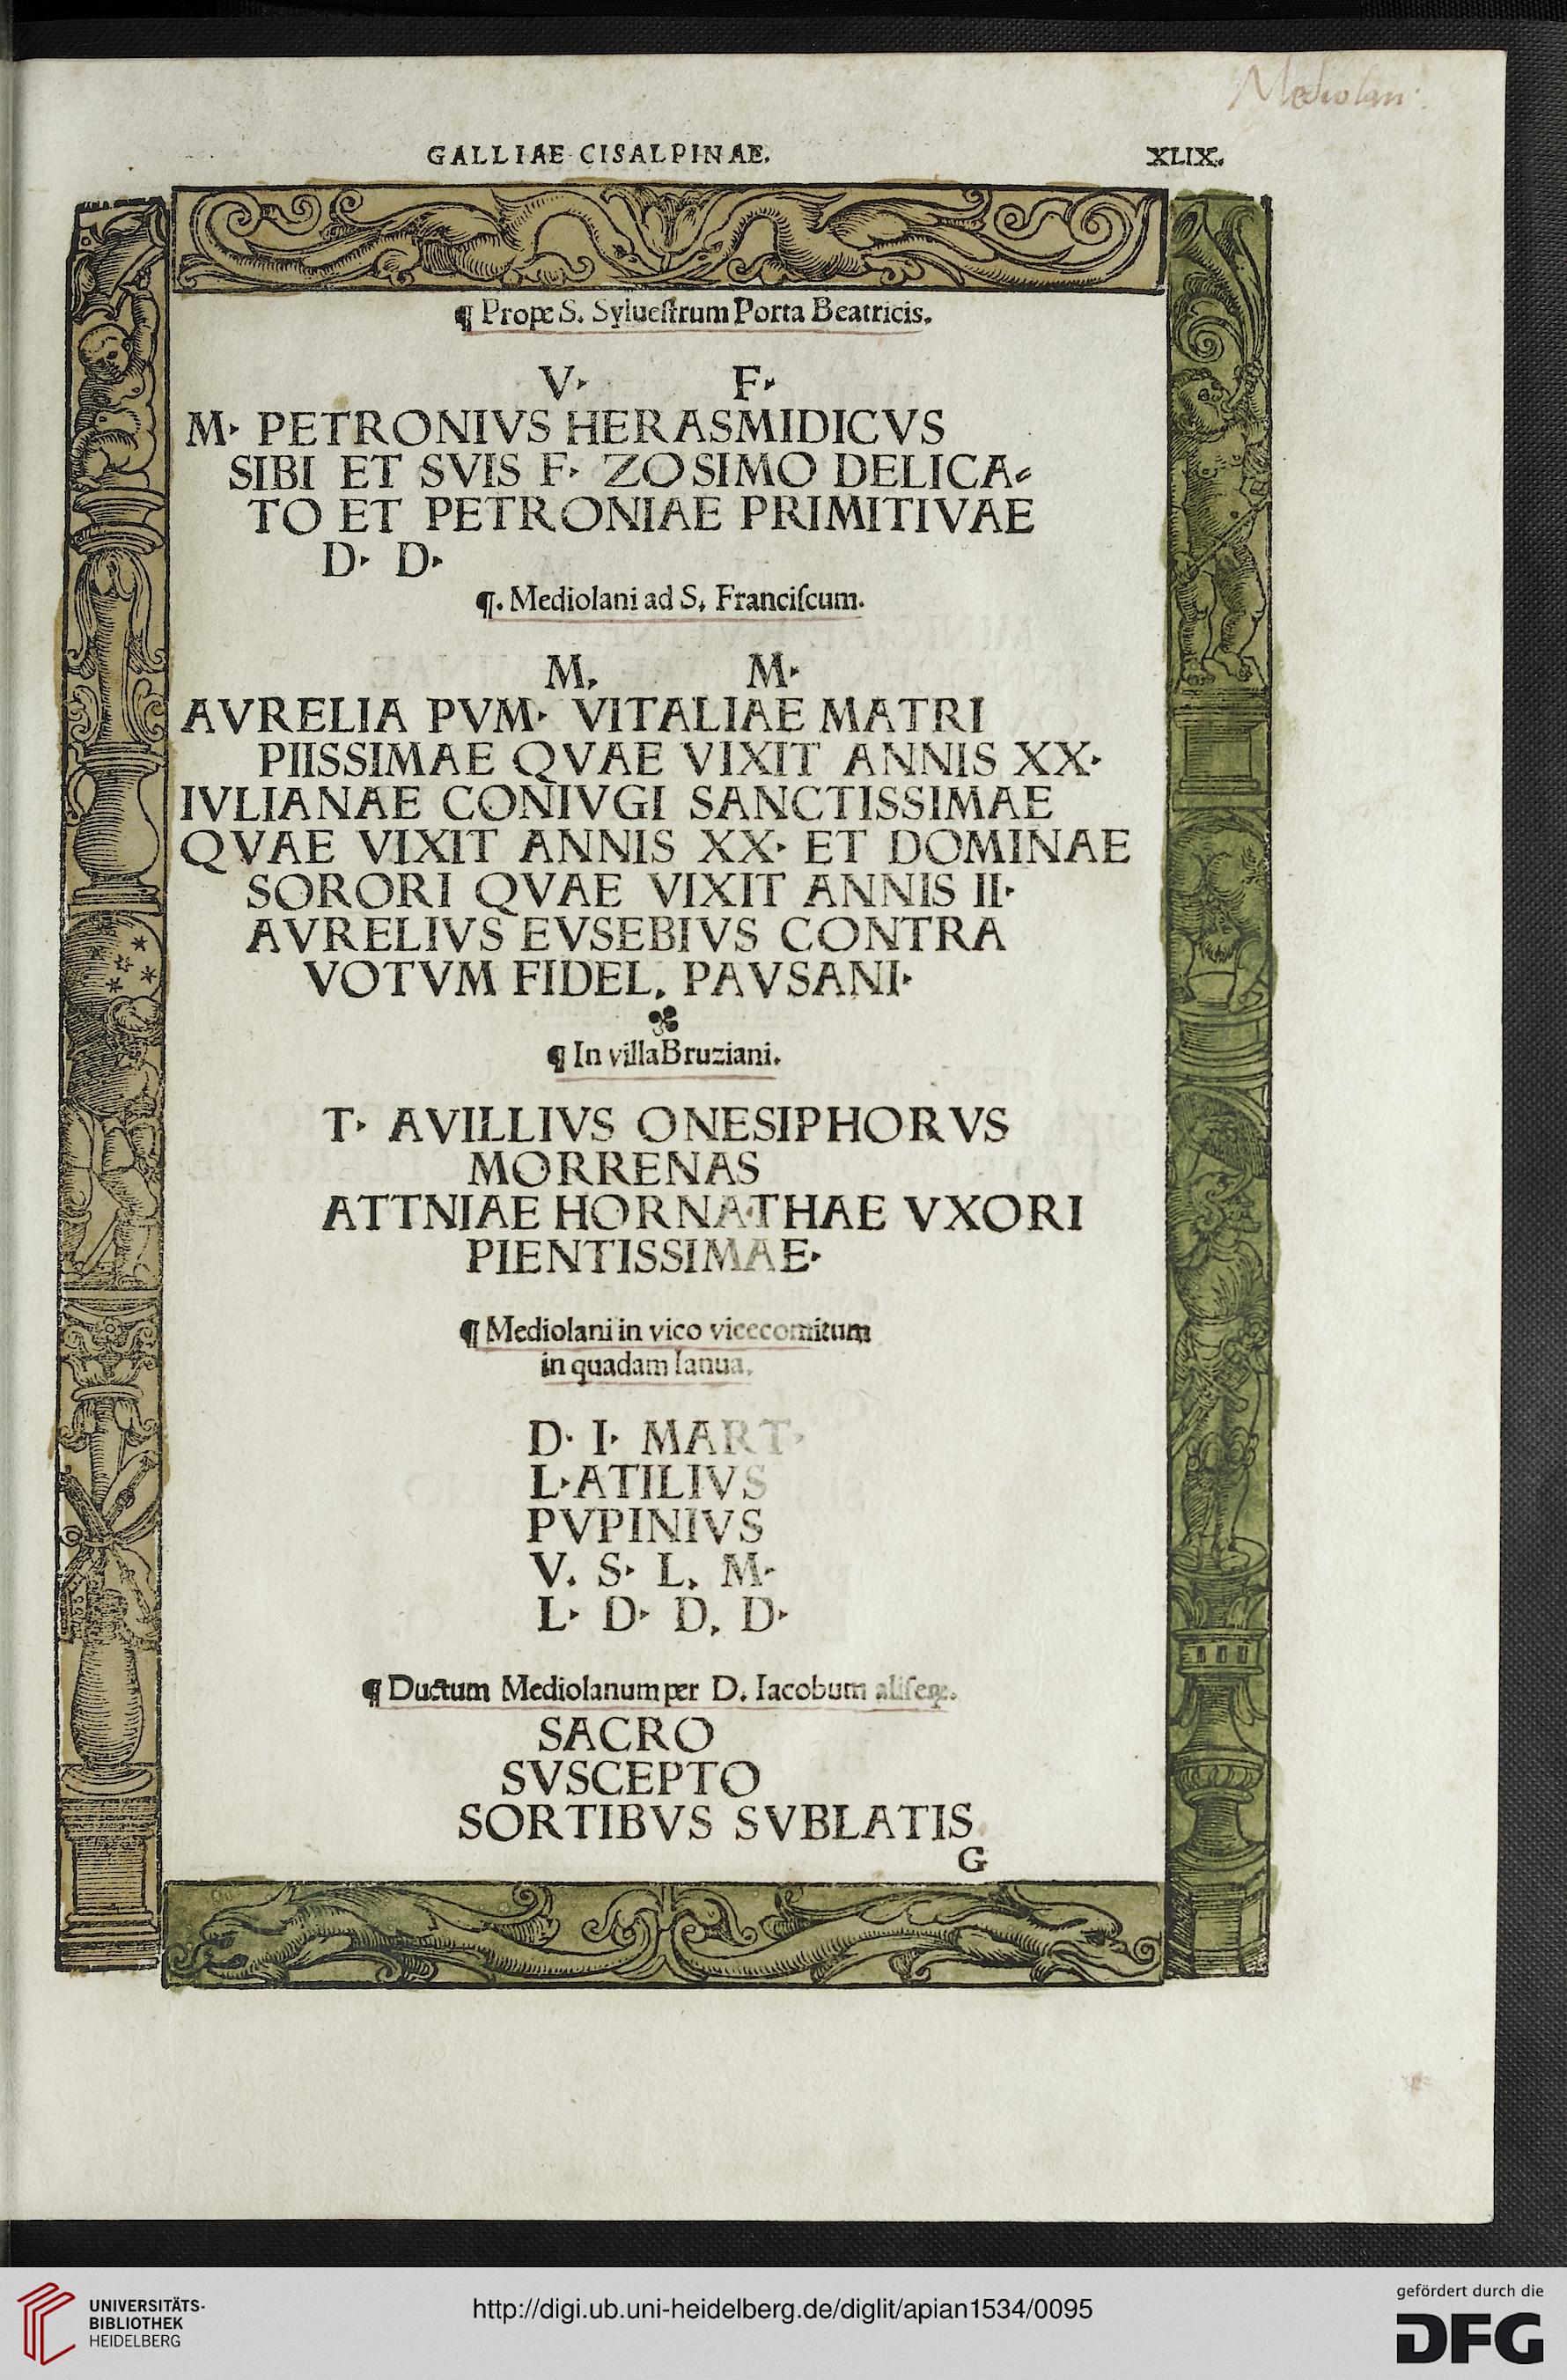 Mediolani
GALLIAE CISALPINAE. XLIX.
¶ Prope S. Sylueſtrum Porta Beatricis.
V. F.
M. PETRONIVS HERASMIDICVS
SIBI ET SVIS F. ZOSIMO DELICA-
TO ET PETRONIAE PRIMITIVAE
D. D.
¶. Mediolani ad S. Franciſcum.
M. M.
AVRELIA PVM. VITALIAE MATRI
PIISSIMAE QVAE VIXIT ANNIS XX.
IVLIANAE CONIVGI SANCTISSIMAE
QVAE VIXIT ANNIS XX. ET DOMINAE
SORORI QVAE VIXIT ANNIS II.
AVRELIVS EVSEBIVS CONTRA
VOTVM FIDEL. PAVSANI.
¶ In villa Bruziani.
T. AVILLIVS ONESIPHORVS
MORRENAS
ATTNIAE HORNATHAE VXORI
PIENTISSIMAE.
¶ Mediolani in vico vicecomitum
in quadam Ianua.
D. I. MART.
L. ATILIVS
PVPINIVS
V. S. L. M.
L. D. D. D.
¶ Ductum Mediolanum per D. Iacobum
SACRO
SVSCEPTO
SORTIBVS SVBLATIS
G
UNIVERSITÄTS-
BIBLIOTHEK
HEIDELBERG
http://digi.ub.uni-heidelberg.de/diglit/apian1534/0095
gefördert durch die
DFG